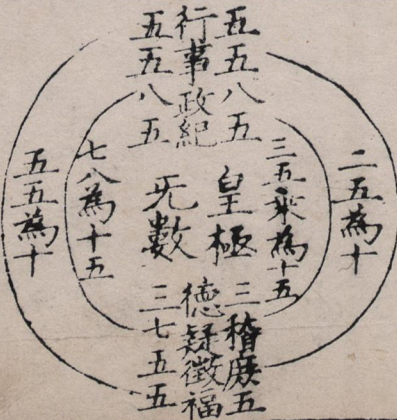 五五八五
行事政紀
五五八五
二五為十
三五乘為十五
皇極
无數
七八為十五
五五為十
三稽庶五
德疑徵福
三七五五